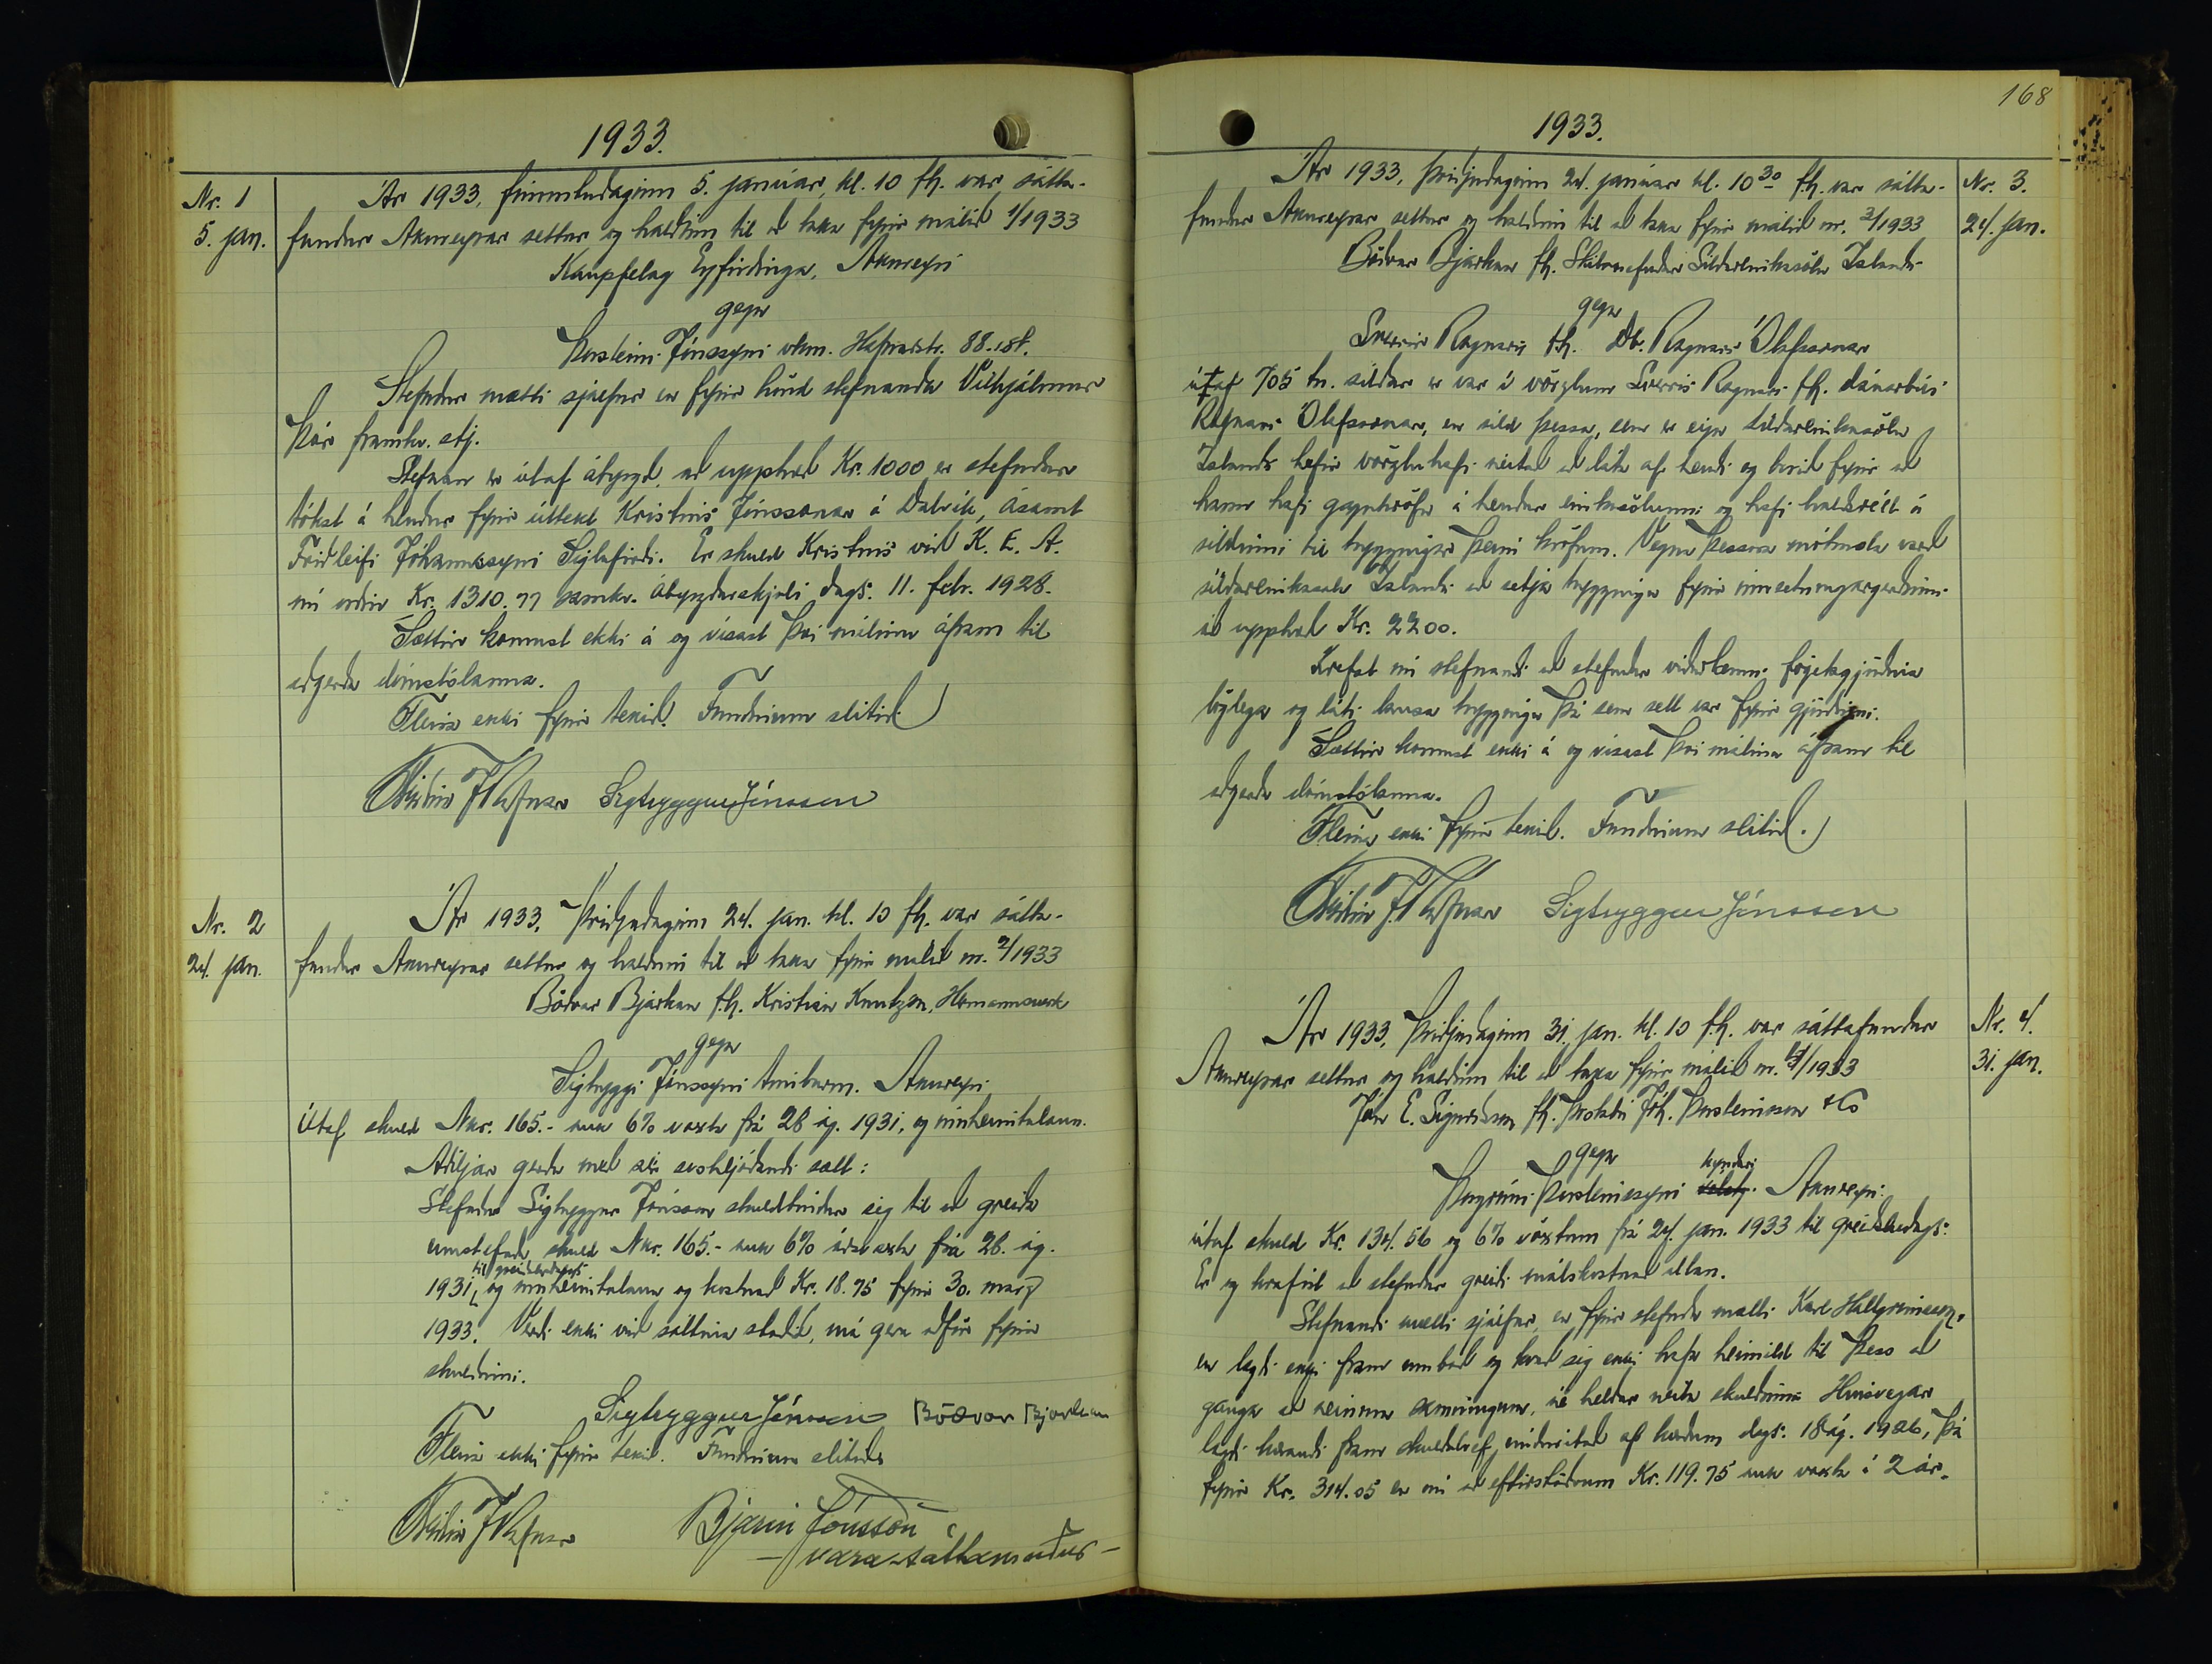 1933.
Nr. 1
5. jan.
Ár 1933, fimmtudaginn 5. janúar, kl. 10 fh. var sátta-
fundur Akureyrar settur og haldinn til að taka fyrir málið 1/1933
Kaupfelag Eyfirðinga, Akureyri
gegn
Þorsteini Jónssyni vkm. Hafnarstr. 88.
Stefndur mætti sjálfur en fyrir hönd stefnanda Vilhjálmur
Þór framkv. stj.
Stefnan er útaf ábyrgð, að upphæð Kr. 1000 er stefndur
tókst á hendur fyrir úttekt Kristins Jónssonar á Dalvík, ásamt
Friðleifi Jóhannssyni Siglufirði. Er skuld Kristins við K. E. A.
nú orðin Kr. 1310.77 samkv. ábyrgðarskjali dags. 11. febr. 1928.
Sættir komust ekki á og vísast því málinu áfram til
aðgerða dómstólanna.
Fleira ekki fyrir tekið. Fundinum slitið
Sigtryggur Jónsson
Nr. 2
24. jan.
Ár 1933, Þriðjudaginn 24. jan. kl. 10 fh. var sátta-
fundur Akureyrar settur og haldinn til að taka fyrir málið nr. 2/1933
Böðvar Bjarkan f.h. Kristian Knutzen,
gegn
Sigtryggi Jónssyni timburm. Akureyri
Útaf skuld Nkr. 165.- auk 6% vaxta frá 28 ág. 1931, og innheimtulaun.
Aðiljar gerðu með sér svohljóðandi sætt:
Stefndur Sigtryggur Jónsson skuldbindur sig til að greiða
umstefnda skuld Nkr. 165.- auk 6% ársvaxta frá 28. ág.
til greiðsludags
1931, og innheimtulaun og kostnað Kr. 18.75 fyrir 30. marz
1933. Verði ekki við sáttina staðið, má gera aðför fyrir
skuldinni.
Sigtryggur Jónsson Böðvar Bjarkan
Fleira ekki fyrir tekið. Fundinum slitið
Bjarni Jónsson
- vara-sáttamaður -
168
1933.
Nr. 3.
24. jan.
Ár 1933, Þriðjudaginn 24. janúar kl. 10 30 f.h. var sátta-
fundur Akureyrar settur og haldinn til að taka fyrir málið nr. 3/1933
Böðvar Bjarkan fh. Skilanefndar Síldareinkasölu Íslands
gegn
Sverrir Ragnars f.h. Db. Ragnars Ólafssonar
útaf 705 tn. síldar er var í vörzlum Sverris Ragnars fh. dánarbús
Ragnars Ólafssonar, en síld þessa, sem er eign síldareinkasölu
Íslands hefir vörzluhafi neitað að láta af hendi og borið fyrir að
hann hafi gagnkröfu á hendur einkasölunni og hafi haldsrétt á
síldinni til tryggingar þeim kröfum. Vegna þessara mótmæla varð
síldareinkasala Íslands að setja tryggingu fyrir innsetningargerðinni
að upphæð Kr. 2200.
Krefst nú stefnandi að stefndur viðurkenni fógetagjörðina
löglega og láti lausa tryggingu þá sem sett var fyrir gjörðinni.
Sættir komust ekki á og vísast því málinu áfram til
aðgerða dómstólanna.
Fleira ekki fyrir tekið. Fundinum slitið.
Sigtryggur Jónsson
Nr. 4.
31. jan.
Ár 1933, Þriðjudaginn 31. jan. kl. 10 f.h. var sáttafundur
Akureyrar settur og haldinn til að taka fyrir málið nr. 4/1933
Jón E. Sigurðsson fh. Þrotabú Jóh. Þorsteinsson & Co
gegn
kyndari
Þorgrími Þorsteinssyni Akureyri.
útaf skuld Kr. 134.56 og 6% vöxtum frá 24. jan. 1933 til greiðsludags.
Er og krafist að stefndur greiði málskostnað allan.
Stefnandi mætti sjálfur, en fyrir stefnda mætti Karl Hallgrímsson,
en lagði ekki fram umboð og kvað sig ekki hafa heimild til þess að
ganga að neinum samningum, né heldur neita skuldinni. Hinsvegar
lagði kærandi fram skuldabréf, undirritað af kærðum dags. 18 ág. 1926, þá
fyrir Kr. 314.05 en nú að eftirstöðvum Kr. 119.75 auk vaxta í 2 ár.